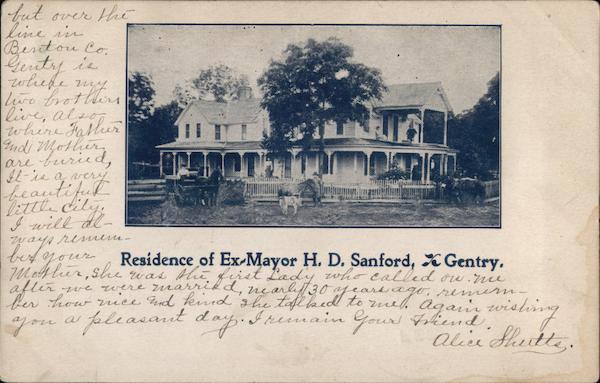 but over the
line in
Benton Co.
Gentry is
where my
two brothers
live, also
where Father
and Mother
are buried,
It is a very
beautiful
little City.
I will al-
ways remem-
ber your
Residence of Ex-Mayor H. D. Sanford, Gentry.
Mother, she was the first Lady who called on me
after we were married, nearly 30 years ago, remem-
ber how nice and kind she talked to me. Again wishing
you a pleasant day. I remain Your Friend.
Alice Sheetts.